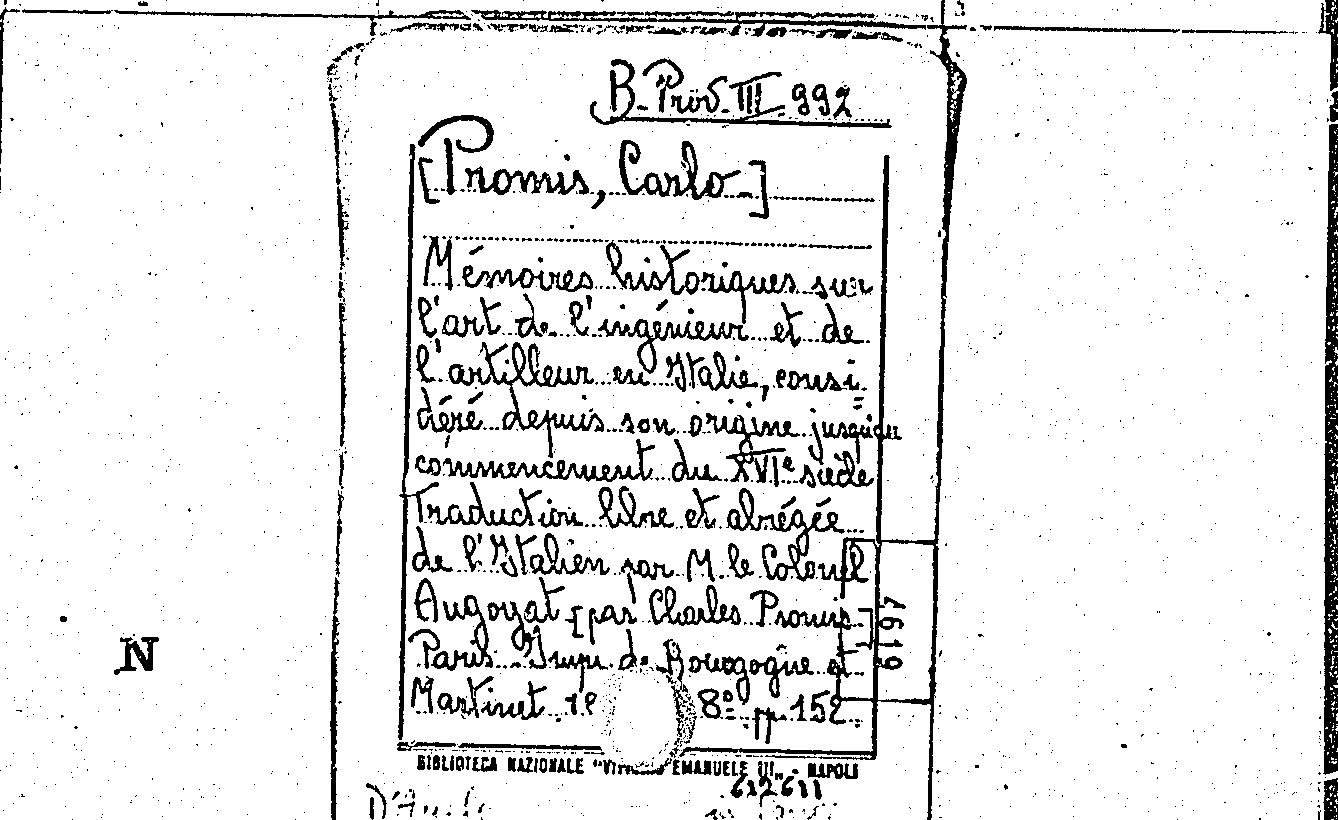 B. Prov. III. 992
[Promis, Carlo]
Mémoires historiques sur
l'art de l'ingénieur et de
l'artilleur en Italie, consi=
déré depuis son origine jusqu'au
commencement du XVIe siècle
Traduction libre et abrégée
de l'Italien par M. le Colonel
Augoyat [par Charles Promis]
Paris Imp. de Bourgogne et
Martinet 8º pp 152.
BIBLIOTECA NAZIONALE EMANUELE III„ - NAPOLI
612611
N